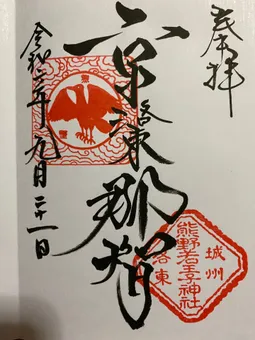 奉拝
京洛東那智
城州
熊野若王子神社
洛東
令和二年九月二十一日